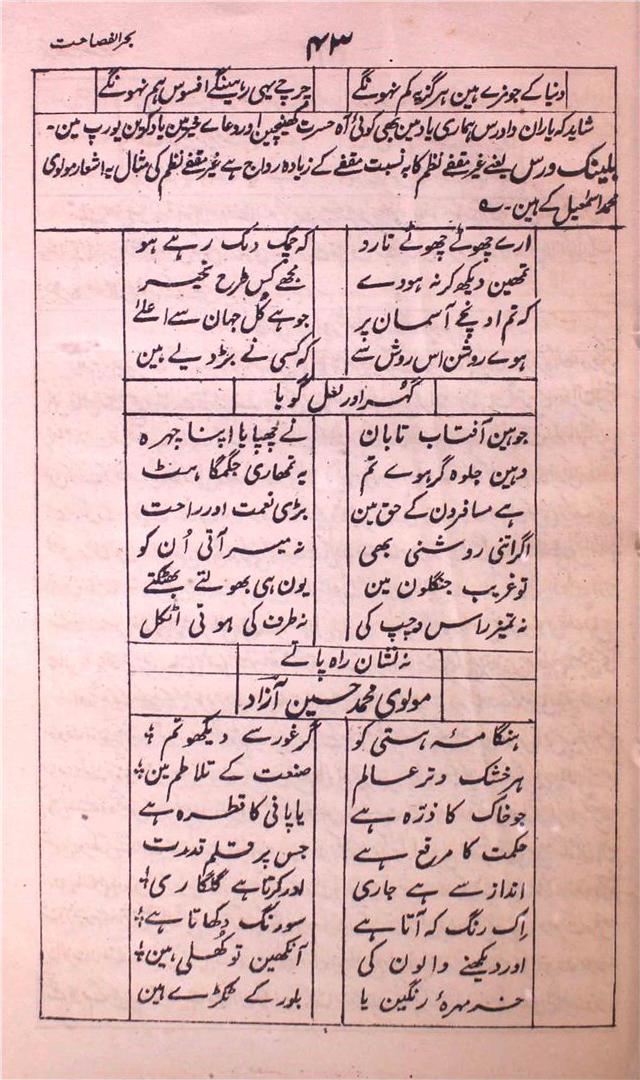 بحر الفصاحت
۴۳
دنیا کے جو مزے ہین ہرگز یہ کم نہونگے چرچے یہی رہینگے افسوس ہم نہونگے
شاید کہ یاران داورس ہماری یاد مین بھی کوئی آہ حسرت کھینچین اور دعاے خیر مین یاد کرین یورپ مین۔
بلینک ورس یعنے غیر مقفے نظم کا بہ نسبت مقفے کے زیادہ رواج ہے غیر مقفے نظم کی مثال یہ اشعار مولوی
محمد اسمٰعیل کے ہین۔ ے
ارے چھوٹے چھوٹے تارو کہ چمک دمک رہے ہو
تمھین دیکھ کر نہ ہووے مجھے کس طرح تحیر
کہ تم اونچے آسمان پر جو ہے کل جہان سے اعلےٰ
ہوے روشن اس روش سے کہ کسی نے جڑ دیے ہین
گہر اور لعل گویا
جوہین آفتاب تابان نے چھپایا اپنا چہرہ
دہین جلوہ گر ہوے تم یہ تمھاری جگمگاہٹ
ہے مسافرون کے حق مین بڑی نعمت اور راحت
اگر اتنی روشنی بھی نہ میسر آتی اُن کو
تو غریب جنگلون مین یون ہی بھولتے بھٹکتے
نہ تمیز راس و چپ کی نہ طرف کی ہوتی اٹکل
نہ نشان راہ پاتے
مولوی محمد حسین آزاد
ہنگامۂ ہستی کو گر غور سے دیکھو تم
ہر خشک و تر عالم صنعت کے تلاطم مین
جو خاک کا ذرّہ ہے یا پانی کا قطرہ ہے
حکمت کا مرقع ہے جس پر قلم قدرت
انداز سے ہے جاری اور کرتا ہے گلکاری
اِک رنگ کہ آتا ہے سو رنگ دکھاتا ہے
اور دیکھنے والون کی آنکھین تو کھلی ہین
خر مہرۂ رنگین یا بلور کے ٹکڑے ہین